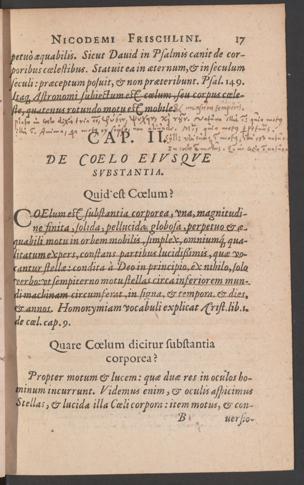 NICODEMI FRISCHLINI. 17
petuò æquabilis. Sicut Dauid in Psalmis canit de cor-
poribus cœlestibus. Statuit ea in æternum, & in seculum
seculi: præceptum posuit, & non præteribunt. Psal. 149.
Itaq; Astronomi subiectum est cœlum, seu corpus cœle-
ste, quatenus rotundo motu est mobile.
CAP. II.
DE COELO EIVSQVE
SVBSTANTIA.
Quid est Cœlum?
COElum est substantia corporea, vna, magnitudi-
ne finita, solida, pellucida, globosa, perpetuo & æ-
quabili motu in orbem mobilis, simplex, omniumq; qua-
litatum expers, constans partibus lucidissimis, quæ vo-
cantur stellæ: condita à Deo in principio, ex nihilo, solo
verbo: vt sempiterno motu stellas circa inferiorem mun-
di machinam circumferat, in signa, & tempora, & dies,
& annos. Homonymiam vocabuli explicat Arist. lib. 1.
de cœl. cap. 9.
Quare Cœlum dicitur substantia
corporea?
Propter motum & lucem: quæ duæ res in oculos ho-
minum incurrunt. Videmus enim, & oculis aspicimus
Stellas, & lucida illa Cœli corpora: item motus, & con-
B uersio-